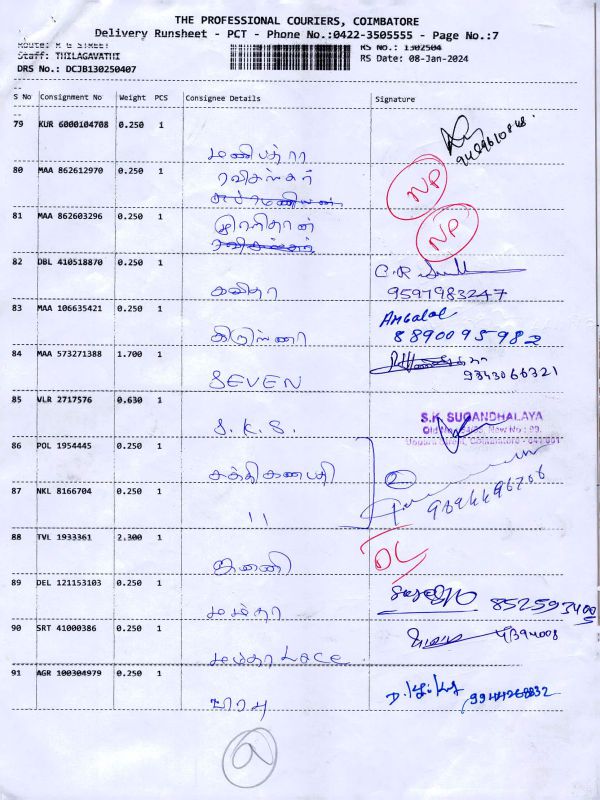 THE PROFESSIONAL COURIERS, COIMBATORE
Delivery Runsheet - PCT - Phone No.:0422-3505555 - Page No.:7
Route: M G STREET RS No.: 1302504
Staff: THILAGAVATHI RS Date: 08-Jan-2024
DRS No.: DCJB130250407
S No Consignment No Weight PCS Consignee Details Signature
79 KUR 6000104708 0.250 1
மணிபத்ரா
80 MAA 862612970 0.250 1
ரவிசங்கர் NP
81 MAA 862603296 0.250 1
NP
82 DBL 410518870 0.250 1
கவிதா 9597983247
83 MAA 106635421 0.250 1
கிருஷ்ணா 8890095982
84 MAA 573271388 1.700 1
SEVEN 9343066321
85 VLR 2717576 0.630 1
S.K.S. S.K. SUGANDHALAYA
86 POL 1954445 0.250 1
சக்திகணபதி 2
87 NKL 8166704 0.250 1
11
88 TVL 1933361 2.300 1
DL
89 DEL 121153103 0.250 1
மம்தா
90 SRT 41000386 0.250 1
மம்தா Lace
91 AGR 100304979 0.250 1
பிரபு